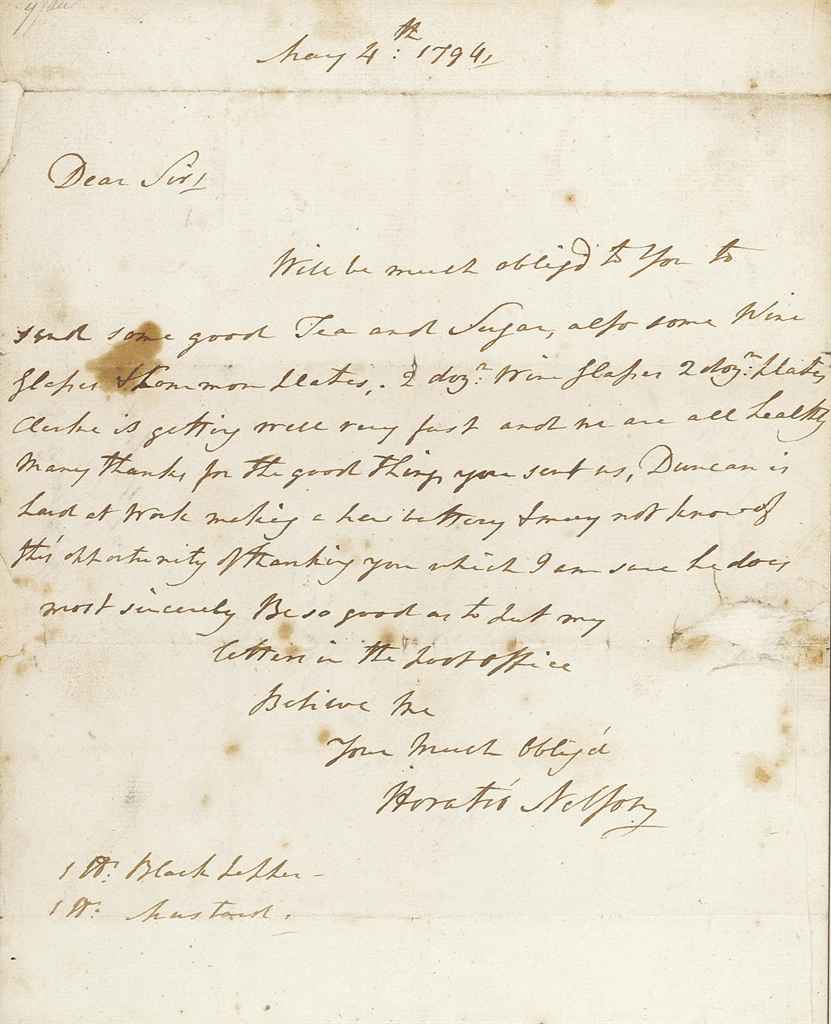 May 4th: 1794,
Dear Sir,
Will be much oblig'd to You to
send some good Tea and Sugar, also some Wine
Glasses & Common Plates, 2 dozn: Wine Glasses 2 dozn: Plates
Clerke is getting well very fast and we are all healthy
Many thanks for the good things you sent us, Duncan is
hard at Work making a new battery & may not know of
this opportunity of thanking you which I am sure he does
most sincerely Be so good as to put my
letters in the post office
Believe Me
Your Much Oblig'd
Horatio Nelson
1 tt: Black Pepper -
1 tt: Mustard.